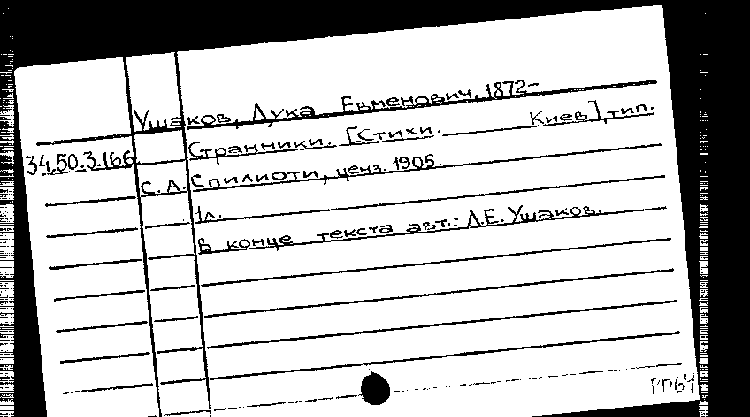 Ушаков, Лука Евменович, 1872-
34.50.3.166 Странники. [Стихи. Киев], тип.
С. А. Спилиоти, ценз. 1905.
1л.
В конце текста авт.: Л.Е. Ушаков.